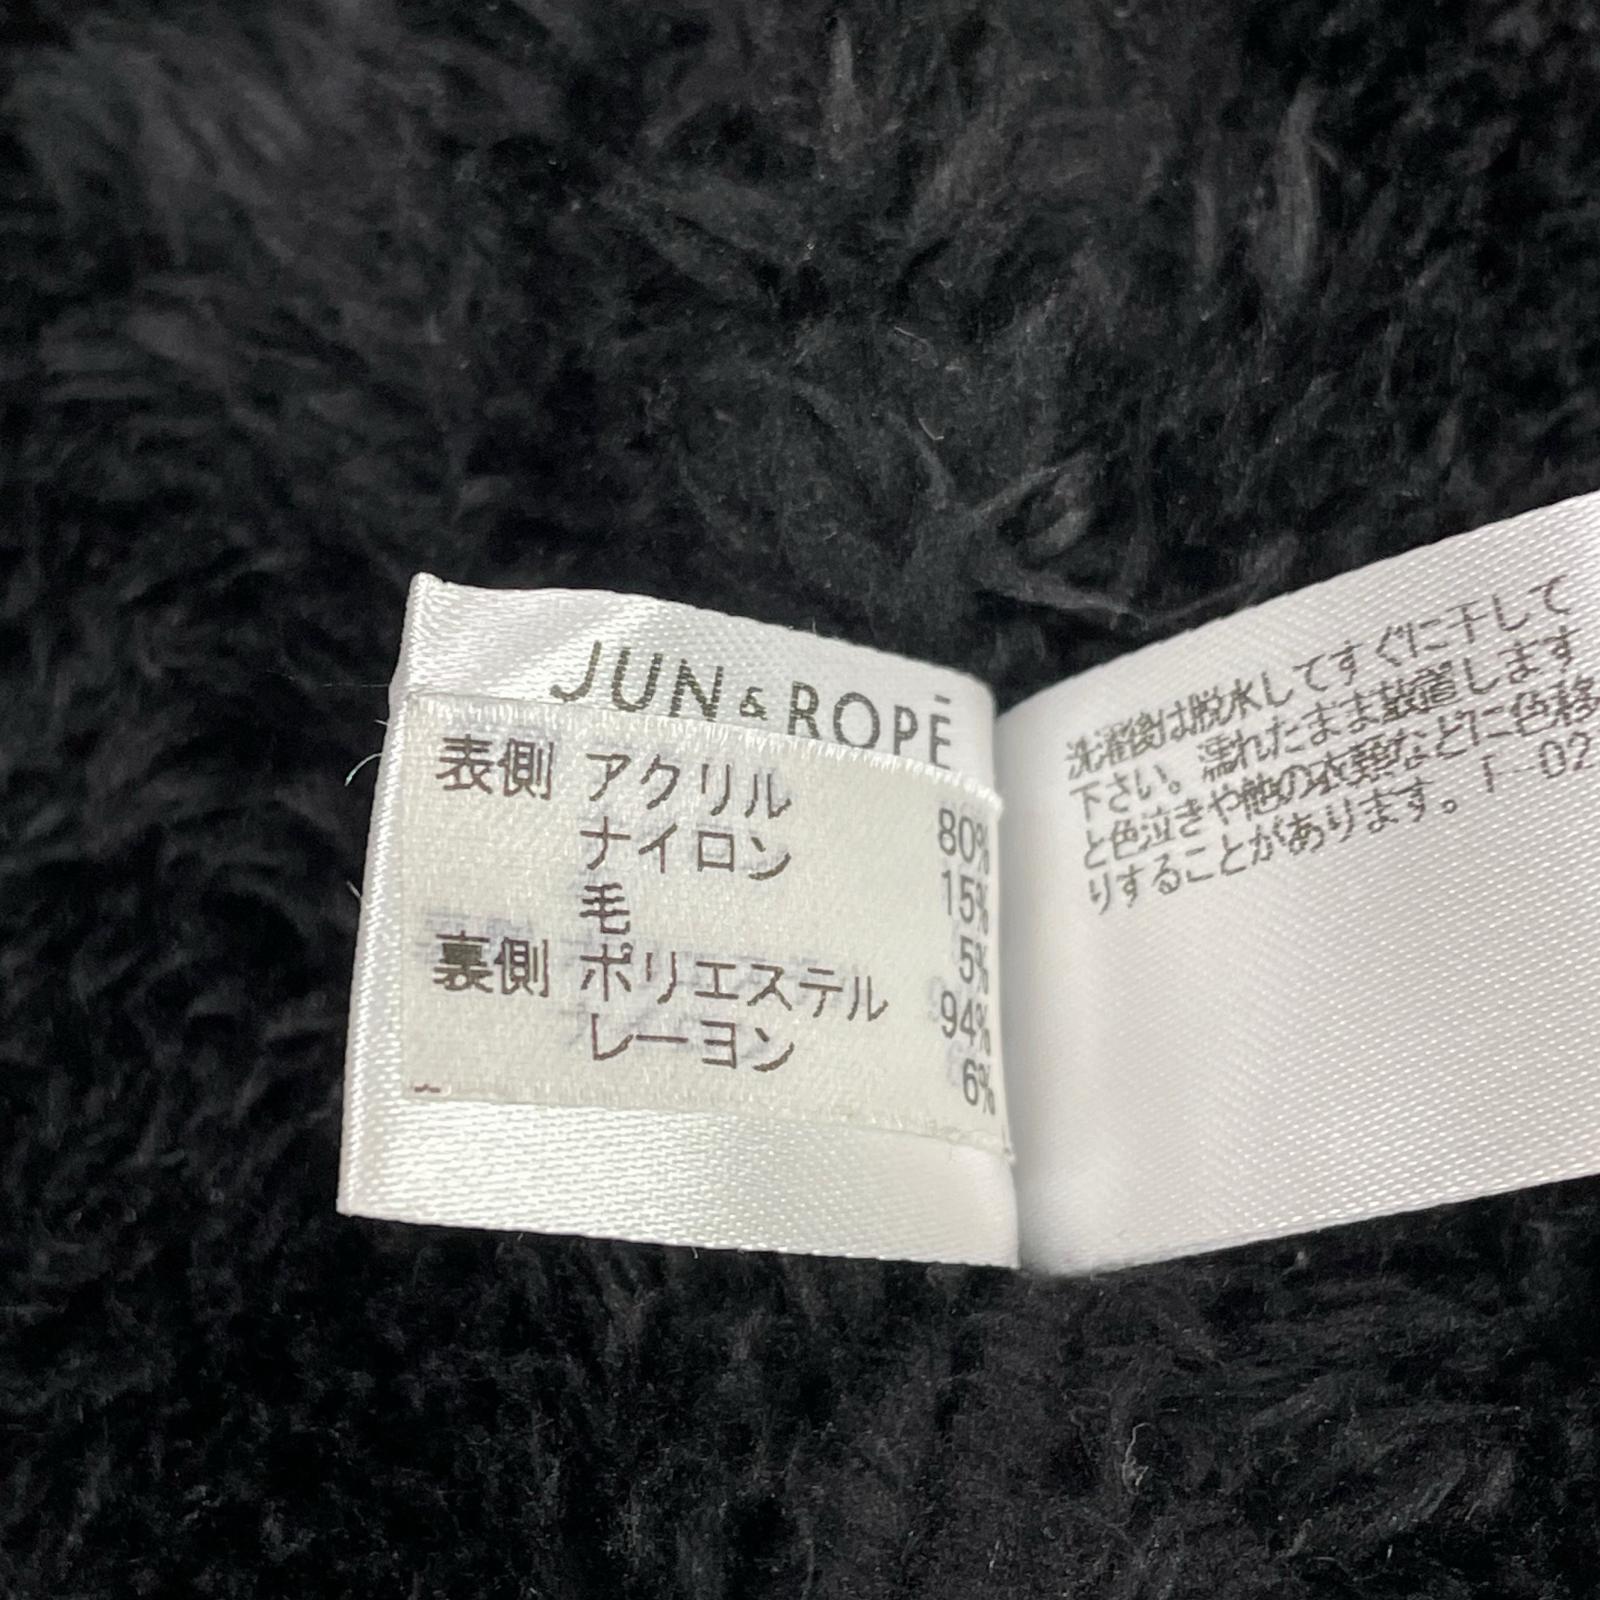 JUN & ROPĒ
表側 アクリル 80%
ナイロン 15%
毛 5%
裏側 ポリエステル 94%
レーヨン 6%
洗濯後は脱水してすぐに干して
下さい。濡れたまま放置します
と色泣きや他の衣類などに色移
りすることがあります。 T-02